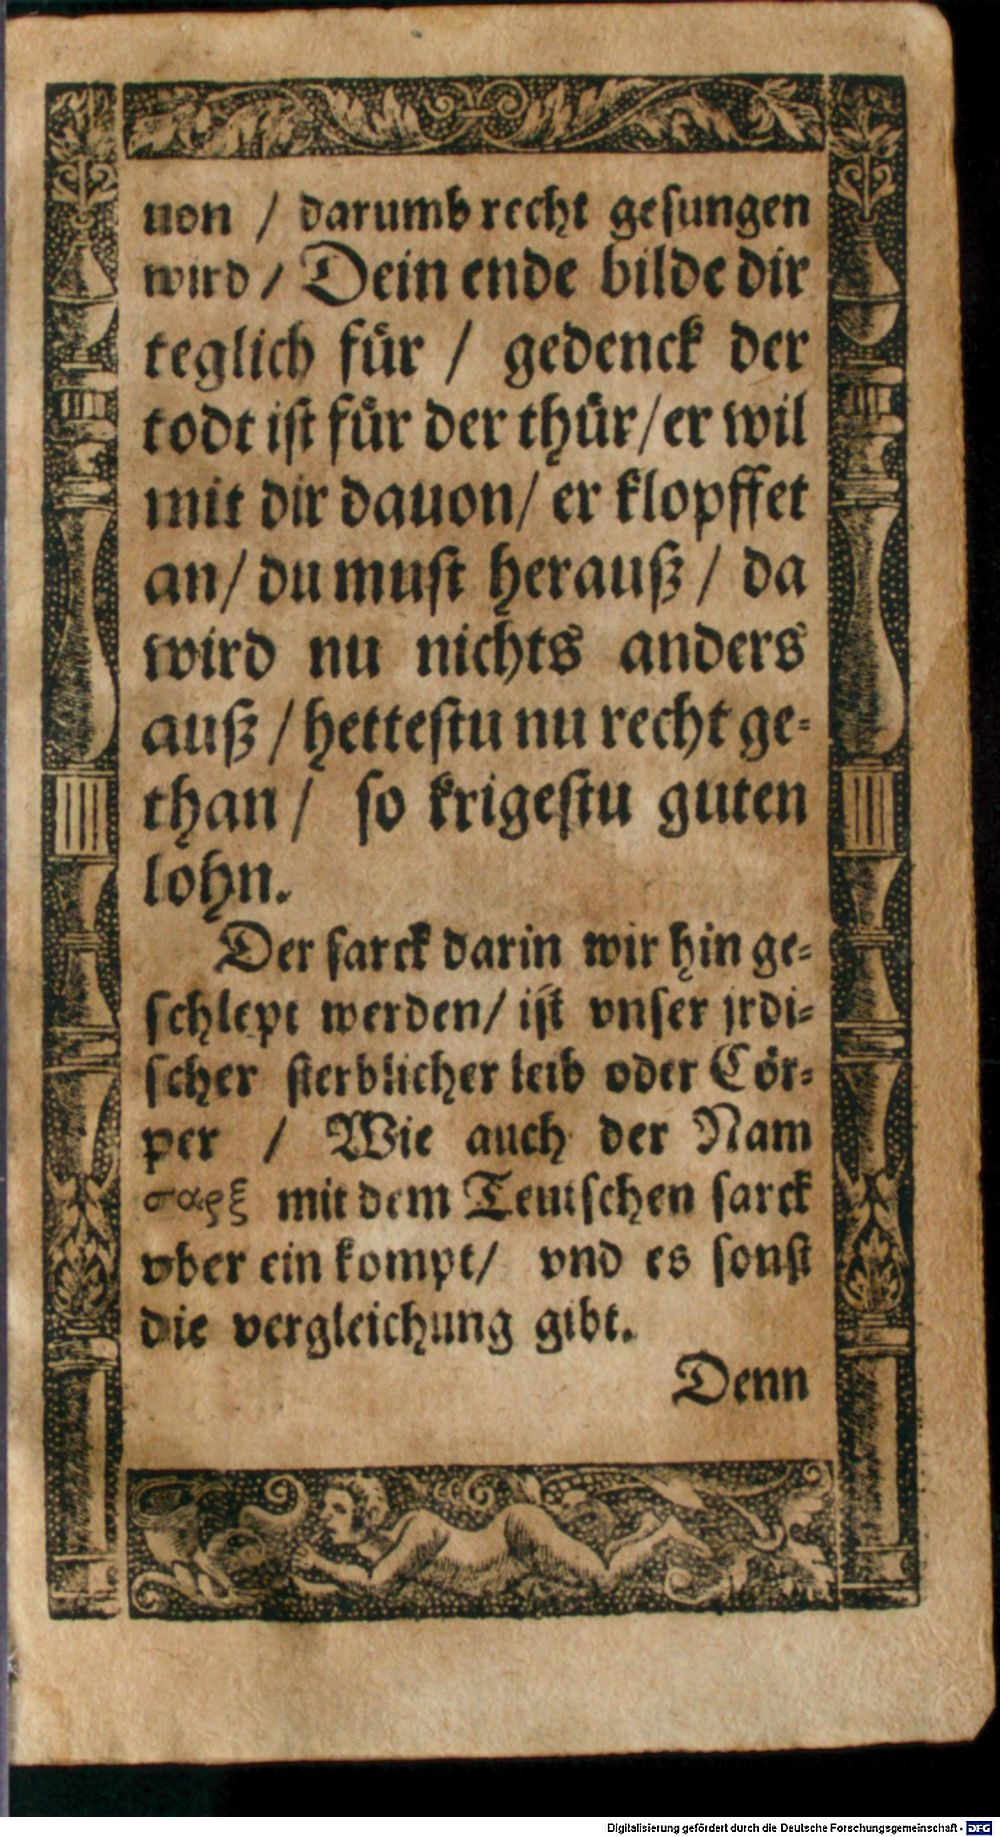 uon / darumb recht gesungen
wird / Dein ende bilde dir
teglich fuͤr / gedenck der
todt ist fuͤr der thuͤr / er wil
mit dir dauon / er klopffet
an / du must herauß / da
wird nu nichts anders
auß / hettestu nu recht ge=
than / so krigestu guten
lohn.
Der sarck darin wir hin ge=
schlept werden / ist vnser jrdi=
scher sterblicher leib oder Coͤr=
per / Wie auch der Nam
σαρξ mit dem Teutschen sarck
vber ein kompt / vnd es sonst
die vergleichung gibt.
Denn
Digitalisierung gefördert durch die Deutsche Forschungsgemeinschaft - DFG